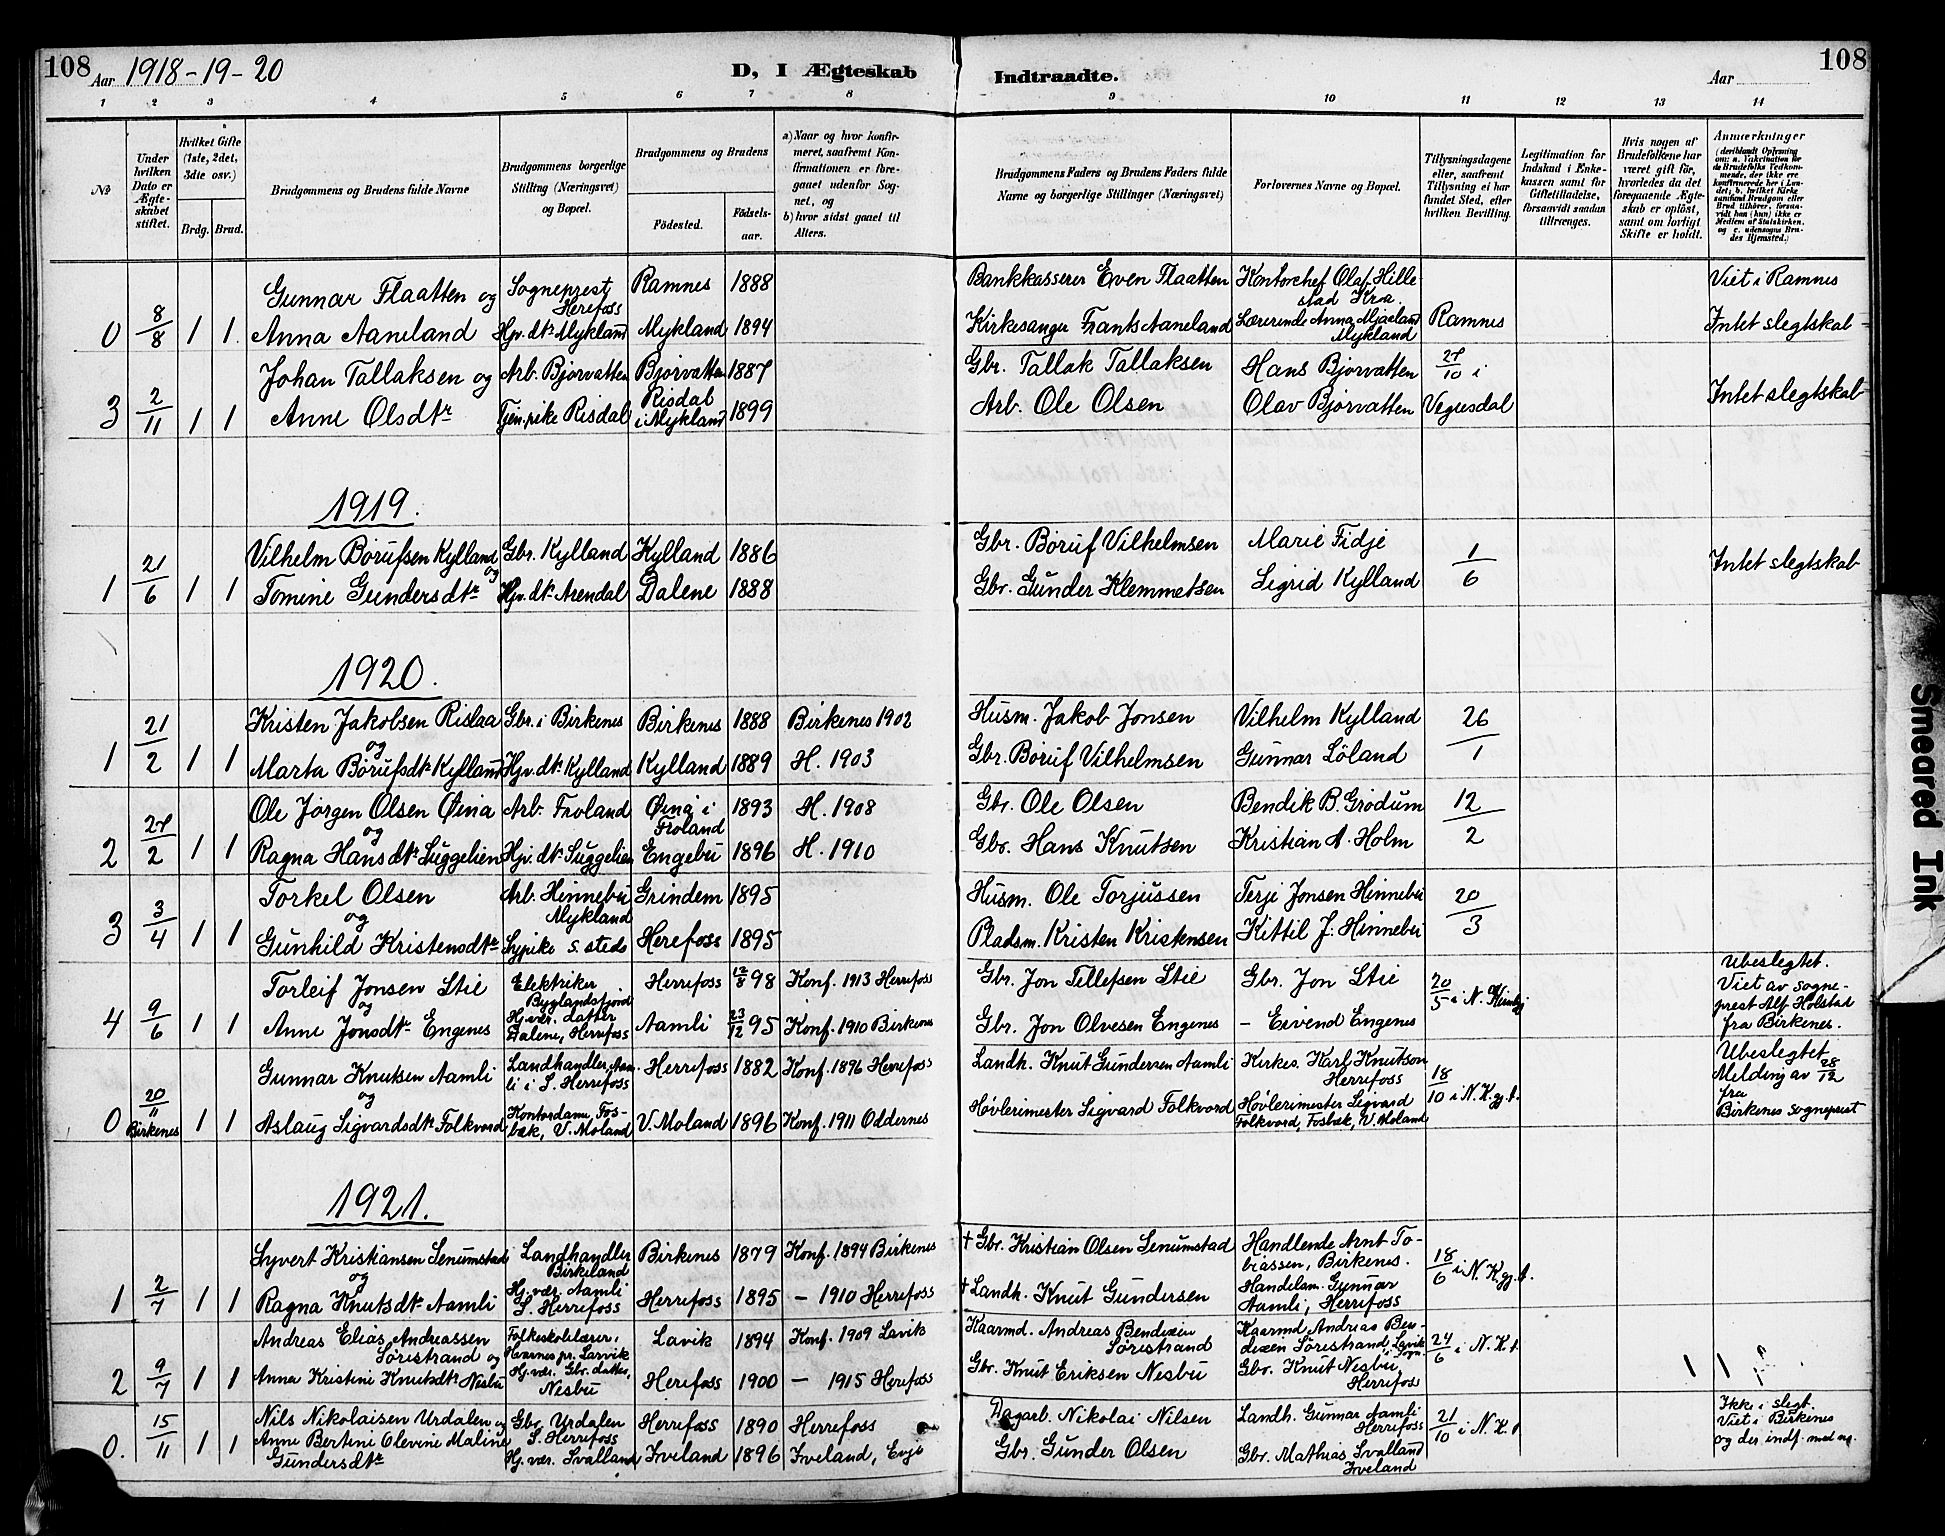 108 Aar 1918-19-20
D, I Ægteskab Indtraadte.
Aar 108
1 2 3 4 5 6 7 8 9 10 11 12 13 14
No
Under hvilken Dato er Ægteskabet stiftet.
Hvilket Gifte (1ste, 2det, 3die osv.)
Brdg. Brud.
Brudgommens og Brudens fulde Navne
Brudgommens borgerlige Stilling (Næringsvei) og Bopæl.
Brudgommens og Brudens
Fødested.
Fødselsaar.
a) Naar og hvor konfirmeret, saafremt Konfirmationen er foregaaet udenfor Sognet, og
b) hvor sidst gaaet til Alters.
Brudgommens Faders og Brudens Faders fulde Navne og borgerlige Stillinger (Næringsvei)
Forlovernes Navne og Bopæl.
Tillysningsdagene eller, saafremt Tillysning ei har fundet Sted, efter hvilken Bevilling.
Legitimation for Indskud i Enkekassen samt for Giftetilladelse, forsaavidt saadan tiltrænges.
Hvis nogen af Brudefolkene har været gift før, hvorledes da det foregaaende Ægteskab er opløst, samt om lovligt Skifte er holdt.
Anmærkninger
(deriblandt Oplysning om: a. Vakcination for de Brudefolks Vedkommende, der ikke ere konfirmerede her i Landet; b. hvilket Kirkesamfund Brudgom eller Brud tilhører, forsaavidt han (hun) ikke er Medlem af Statskirken, og c. udensogns Brudes Hjemsted.)
Gunnar Flaatten og Sogneprest Herefoss Ramnes 1888 Bankkasserer Even Flaatten Kontorchef Olaf Hillestad Kra. Viet i Ramnes
0 8/8 1 1 Anna Aaneland Hjv. dtr Mykland Mykland 1894 Kirkesanger Frants Aaneland Lærerinde Anna Mjaaland Mykland Ramnes Intet slegtskab
Johan Tallaksen og Arb. Bjorvatten Bjorvatten 1887 Gbr. Tallak Tallaksen Hans Bjorvatten 27/10 i
3 2/11 1 1 Anne Olsdtr Tjen.pike Risdal Risdal i Mykland 1899 Arb. Ole Olsen Olav Bjorvatten Vegusdal Intet slegtskab
1919.
Vilhelm Børufsen Kylland og Gbr. Kylland Kylland 1886 Gbr. Børuf Vilhelmsen Marie Fidje 1/6
1 21/6 1 1 Tomine Gundersdtr Hjv. dtr Arendal Dalene 1888 Gbr. Gunder Klemmetsen Sigrid Kylland Intet slegtskab
1920.
Kristen Jakobsen Rislaa og Gbr. i Birkenes Birkenes 1888 Birkenes 1902 Husm. Jakob Jonsen Vilhelm Kylland 26/1
1 21/2 1 1 Marta Børufsdtr Kylland Hjv. dtr Kylland Kylland 1889 H. 1903 Gbr. Børuf Vilhelmsen Gunnar Løland
Ole Jørgen Olsen Øina og Arb. Froland Øina i Froland 1893 H. 1908 Gbr. Ole Olsen Bendik B. Grødum 12/2
2 27/2 1 1 Ragna Hansdtr Suggelien Hjv. dtr Suggelien Engebu 1896 H. 1910 Gbr. Hans Knutsen Kristian A. Holm
Torkel Olsen og Arb. Hinnebu Mykland Grindem 1895 Husm. Ole Torjussen Terje Jonsen Hinnebu 20/3
3 3/4 1 1 Gunhild Kristensdtr Sypike s. steds Herefoss 1895 Pladsm. Kristen Kristensen Kittil J. Hinnebu
Torleif Jonsen Stie og Elektriker Byglandsfjord Herrefoss 12/8 98 Konf. 1913 Herrefoss Gbr. Jon Tellefsen Stie Gbr. Jon Stie 20/5 i N. Ubeslegtet. Viet av sogneprest Alf Holstad fra Birkenes.
4 9/6 1 1 Anne Jonsdtr Engenes Hj. vær. datter Dalene, Herrefoss Aamli 23/12 95 Konf. 1910 Birkenes Gbr. Jon Olvesen Engenes - Eivend Engenes
Gunnar Knutsen Aamli og Landhandler, Aamli i S. Herrefoss Herrefoss 1882 Konf. 1896 Herrefoss Landh. Knut Gundersen Aamli Kirkes. Karl Knutson Herrefoss 18/10 i N. K. gj. t. Ubeslegtet Melding av 28/12 fra Birkenes sogneprest
0 20/11 Birkenes 1 1 Aslaug Sigvardsdtr Folkvord Kontordame, Fosbæk, V. Moland V. Moland 1896 Konf. 1911 Oddernes Høvlerimester Sigvard Folkvord Høvlerimester Sigvard Folkvord, Fosbæk, V. Moland
1921.
Syvert Kristiansen Senumstad og Landhandler Birkeland Birkenes 1879 Konf. 1894 Birkenes † Gbr. Kristian Olsen Senumstad Handlende Arnt Tobiassen, Birkenes. 18/6 i N. K. gj. t.
1 2/7 1 1 Ragna Knutsdtr Aamli Hj. vær. Aamli S. Herrefoss Herrefoss 1895 - 1910 Herrefoss † Landh. Knut Gundersen Handelsm. Gunnar Aamli, Herrefoss
Andreas Elias Andreassen Søristrand og Folkeskolelærer, pr. Larvik Lavik 1894 Konf. 1909 Lavik Kaarmd. Andreas Bendixen Søristrand Kaarmd Andreas Bendixen Søristrand, Lavik i Sogn 24/6 i N. K. t.
2 9/7 1 1 Anna Kristine Knutsdtr Nesbu Hj. vær. Gbr. datter, Nesbu Herefoss 1900 - 1915 Herefoss Gbr. Knut Eriksen Nesbu Gbr. Knut Nesbu, Herrefoss
Nils Nikolaisen Urdalen og Gbr. Urdalen S. Herrefoss Herrefoss 1890 Herrefoss Dagarb. Nikolai Nilsen Landh. Gunnar Aamli Herrefoss 21/10 i N. K. t Ikke i slegt. Viet i Birkenes og der indf. med no.
0. 15/11 1 1 Anne Bertine Olevine Maline Gundersdtr Hj. vær. Svalland Iveland 1896 Iveland, Evje Gbr. Gunder Olsen Gbr. Mathias Svalland Iveland
Smeared Ink